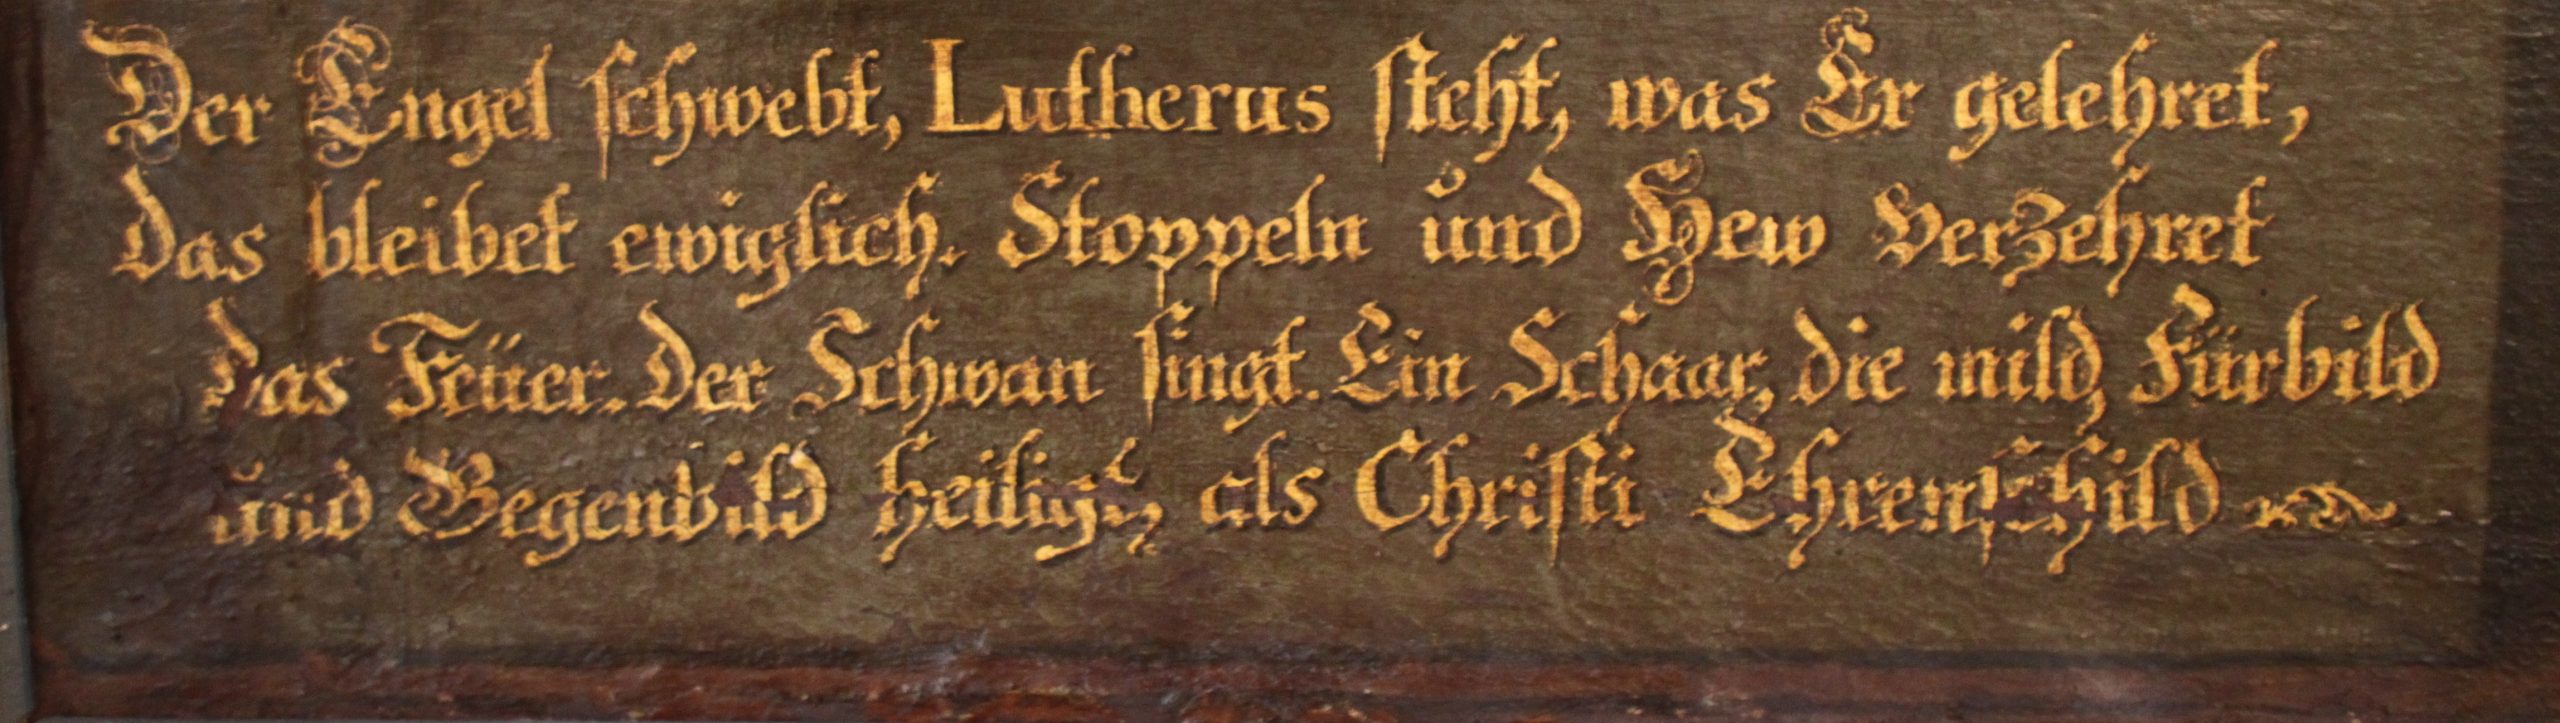 Der Engel schwebt, Lutherus steht, was Er gelehret,
Das bleibet ewiglich. Stoppeln und Hew verzehret
Das Feüer. Der Schwan singt. Ein Schaar, die mild, Fürbild
und Gegenbild heiligt als Christi Ehrenschild